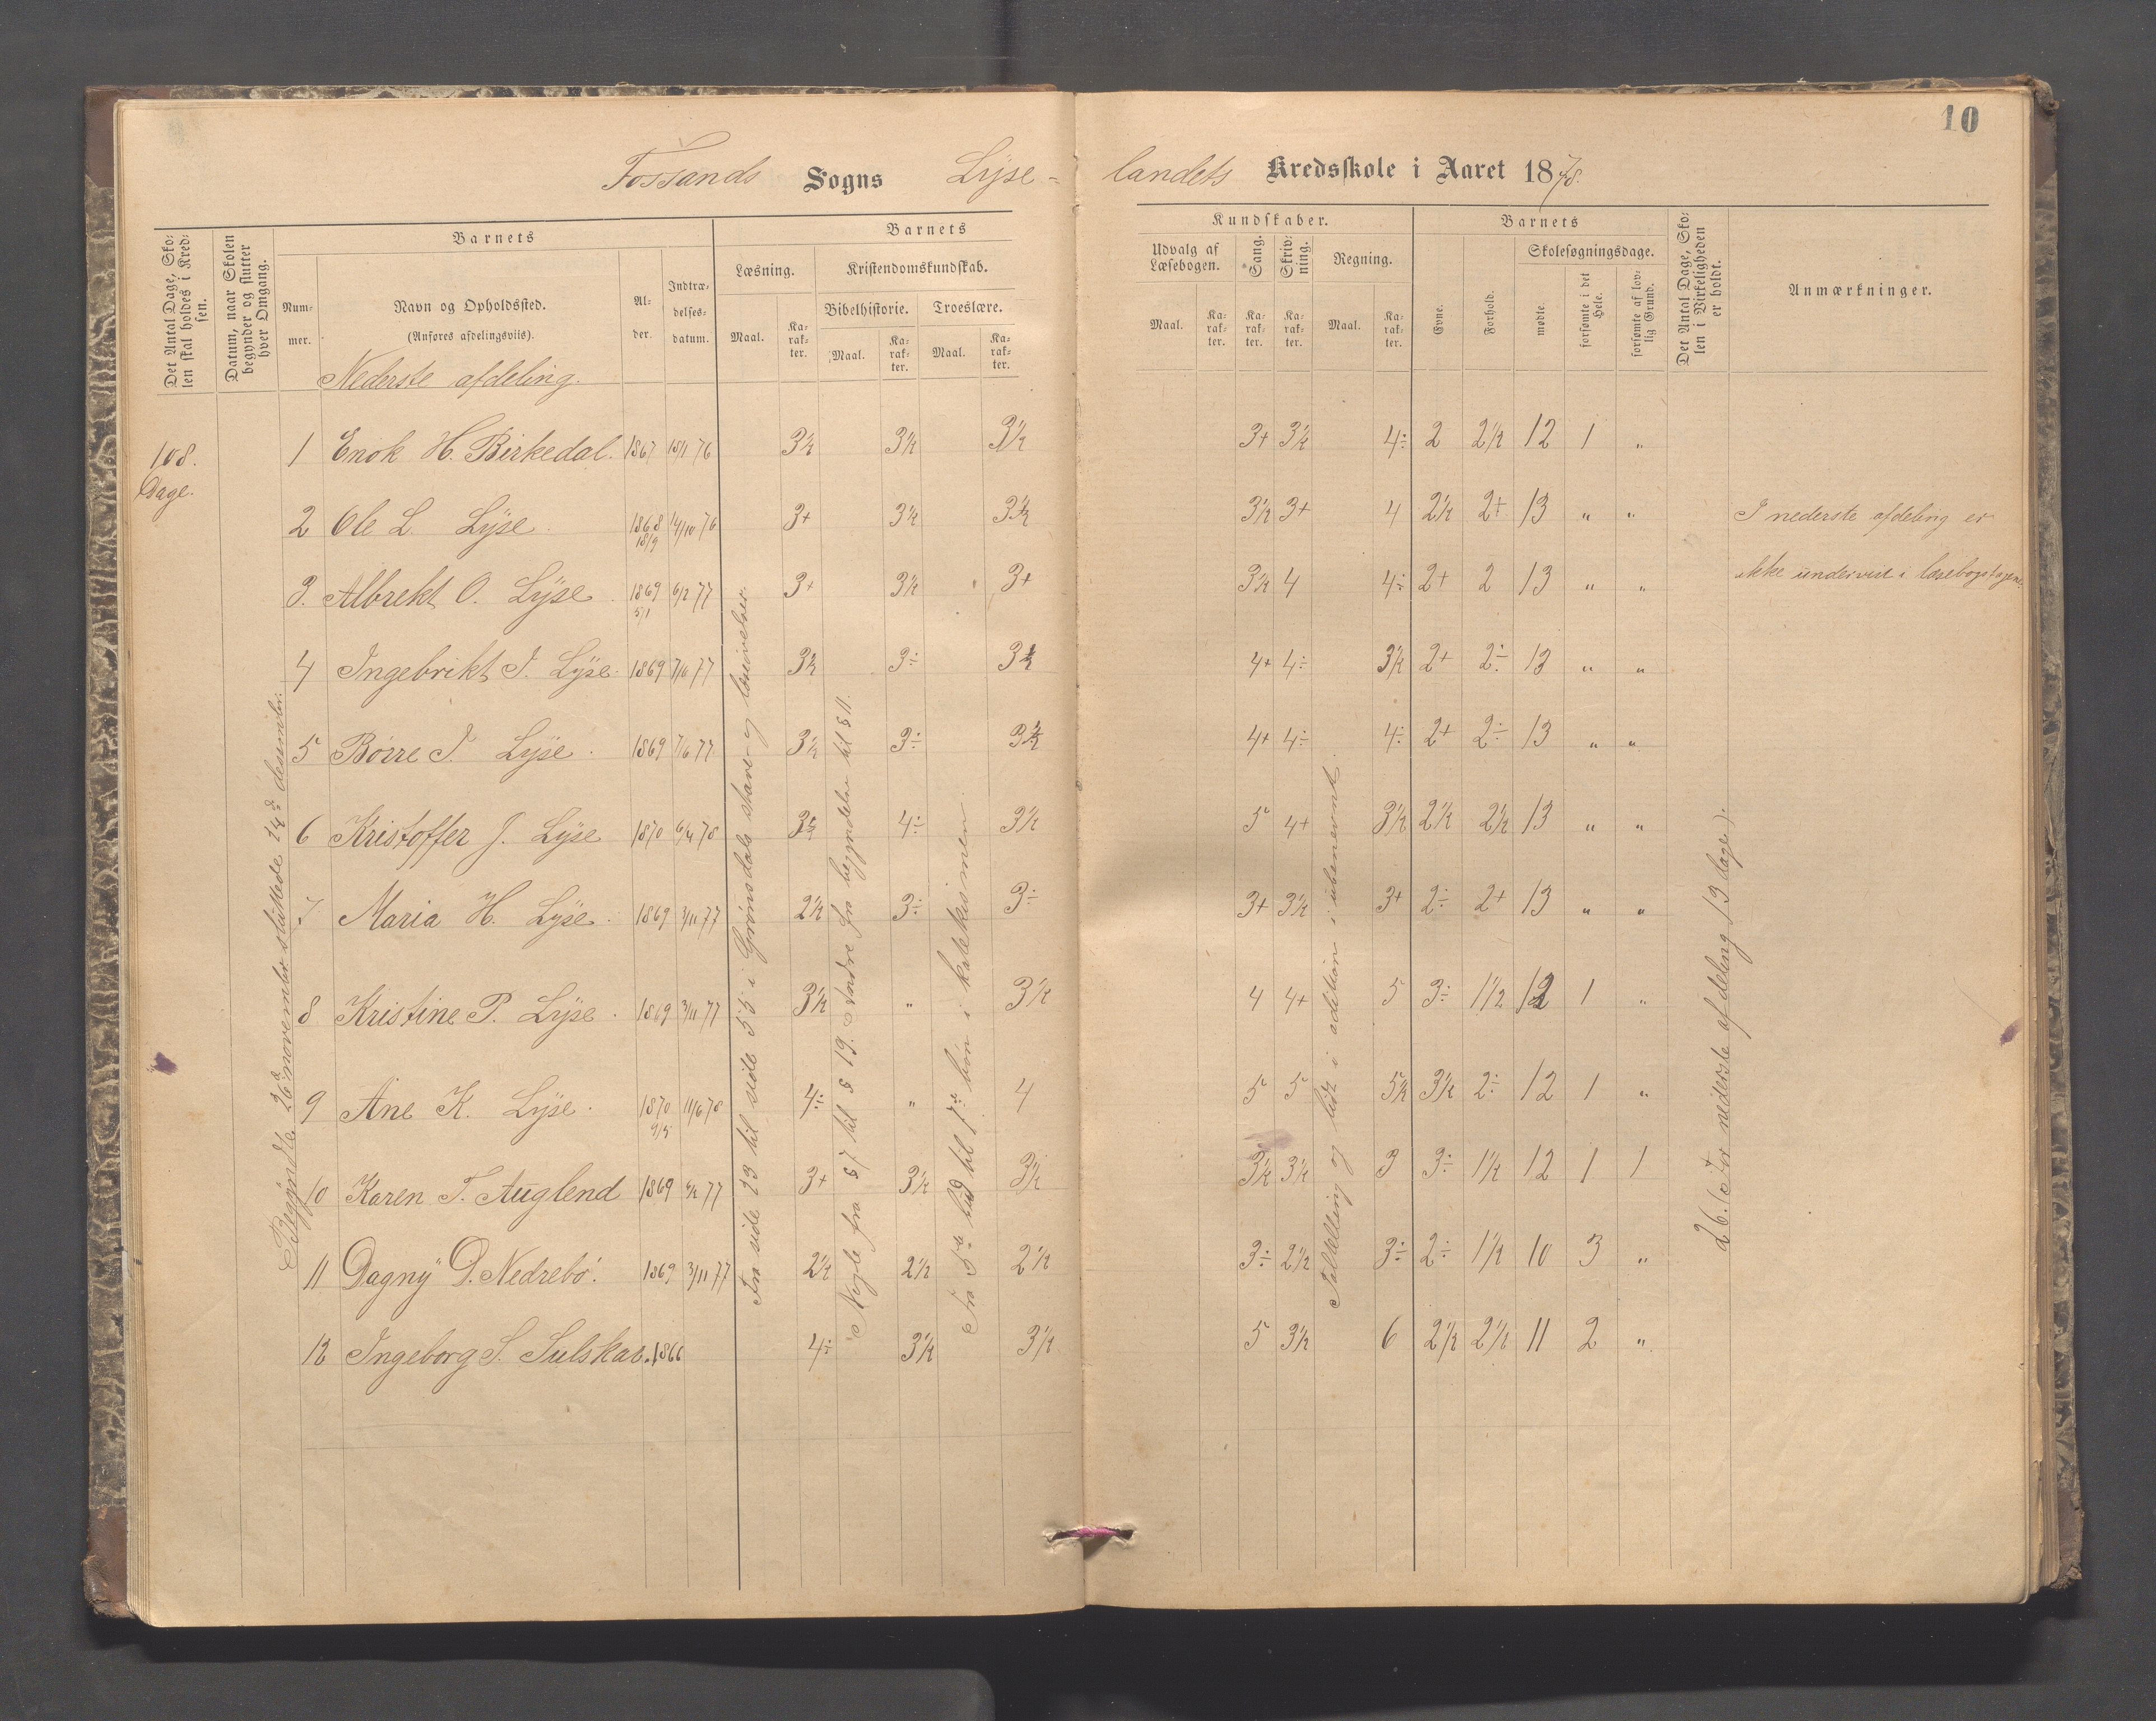 10
Fossands Sogns Lÿse-
landets Kredsskole i Aaret 1878.
Det Antal Dage, Sko-
len skal holdes i Kred-
sen.
Datum, naar Skolen
begynder og slutter
hver Omgang.
Barnets
Num-
mer.
Navn og Opholdssted.
(Anføres afdelingsviis).
Al-
der.
Indtræ-
delses-
datum.
Barnets
Læsning.
Maal.
Ka-
rak-
ter.
Kristendomskundskab.
Bibelhistorie.
Maal.
Ka-
rak-
ter.
Troeslære.
Maal.
Ka-
rak-
ter.
Kundskaber.
Udvalg af
Læsebogen.
Maal.
Ka-
rak-
ter.
Sang.
Ka-
rak-
ter.
Skriv-
ning.
Ka-
rak-
ter.
Regning.
Maal.
Ka-
rak-
ter.
Barnets
Evne.
Forhold.
Skolesøgningsdage.
mødte.
forsømte i det
Hele.
forsømte af lov-
lig Grund.
Det Antal Dage, Sko-
len i Virkeligheden
er holdt.
Anmærkninger.
Nederste afdeling.
108.
Dage.
1 Enok H. Birkedal. 1867 18/11 76 3½ 3½ 3½ 3+ 3½ 4÷ 2 2½ 12 1 "
2 Ole L Lÿse 1868 14/10 76 3+ 3½ 3½ 3½ 3+ 4 2½ 2+ 13 " "
18/9
3. Albrekt O. Lÿse 1869 6/2 77 3+ 3½ 3+ 3½ 4 4÷ 2+ 2 13 " "
5/1
4 Ingebrikt I. Lÿse 1869 7/6 77 3½ 3÷ 3½ 4+ 4÷ 3½ 2+ 2÷ 13 " "
5 Börre I. Lÿse 1869 7/6 77 3½ 3÷ 3½ 4+ 4÷ 4÷ 2+ 2÷ 13 " "
6 Kristoffer J. Lÿse 1870 6/4 78 3½ 4÷ 3½ 5 4+ 3½ 2½ 2½ 13 " "
7 Maria H. Lÿse 1869 3/11 77 2½ 3÷ 3÷ 3+ 3½ 3+ 2÷ 2+ 13 " "
8 Kristine P. Lÿse 1869 3/11 77 3½ " 3½ 4 4+ 5 3÷ 1½ 12 1 "
9 Ane K. Lÿse 1870 11/6 78 4÷ " 4 5 5 5½ 3½ 2÷ 12 1 "
9/5
10 Karen T. Auglend 1869 77 3+ 3½ 3½ 3½ 3½ 3 3÷ 1½ 12 1 1
11 Dagnÿ D. Nedrebö. 1869 3/11 77 2½ 2½ 2½ 3÷ 2½ 3÷ 2÷ 1½ 10 3 "
12 Ingeborg S. Sulskar. 1866 4÷ 3½ 3½ 5 3½ 6 2½ 2½ 11 2 "
Begÿndte 26de november slüttede 14de desember.
Fra side 23 til side 55 i Grönsdals stave- og læseövelser.
Nogle fra § 7 til § 19. Andre fra begyndelse til § 11.
Fra 5te bud til 1ste bön i katekismen.
Taltælling og lidt i adition i ubenevnt.
26. (For nederste afdeling 13 dage).
I nederste afdeling er
ikke ündervist i læsebogstykene.